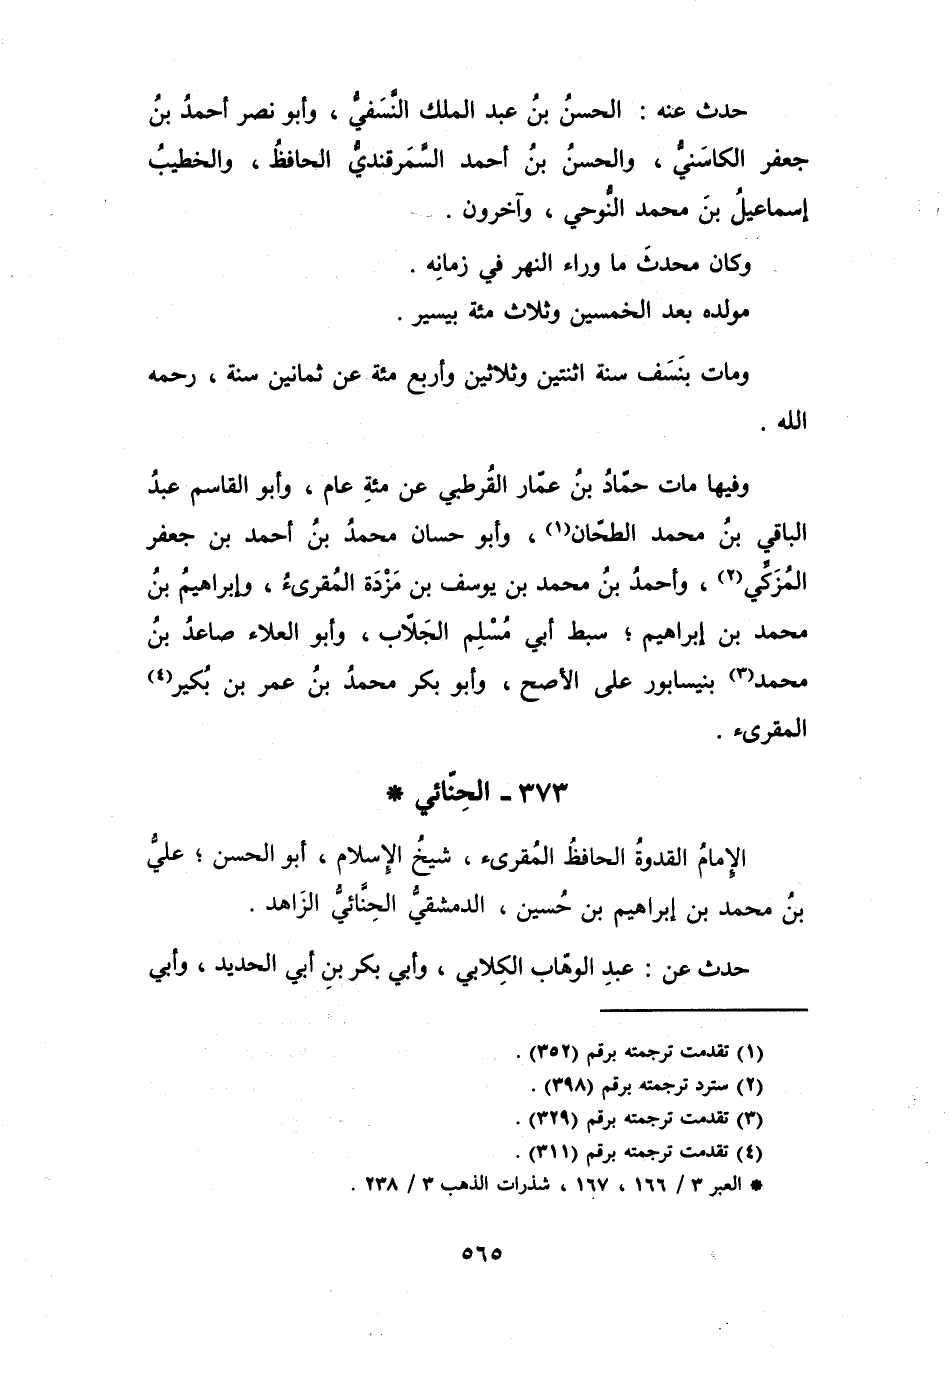 حدث عنه : الحسنُ بنُ عبد الملك النَّسَفيُّ ، وأبو نصر أحمدُ بنُ
جعفر الكاسَنيُّ ، والحسنُ بنُ أحمد السَّمَرقنديُّ الحافظُ ، والخطيبُ
إسماعيلُ بنَ محمد النُّوحي ، وآخرون .
وكان محدثَ ما وراء النهر في زمانِه .
مولده بعد الخمسين وثلاث مئة بيسير .
ومات بنَسَف سنة اثنتين وثلاثين وأربع مئة عن ثمانين سنة ، رحمه
الله .
وفيها مات حمّادُ بنُ عمّار القُرطبي عن مئةِ عام ، وأبو القاسم عبدُ
الباقي بنُ محمد الطحّان(١) ، وأبو حسان محمدُ بنُ أحمد بن جعفر
المُزَكِّي(٢) ، وأحمدُ بنُ محمد بن يوسف بن مَزْدَة المُقرىءُ ، وإبراهيمُ بنُ
محمد بن إبراهيم ؛ سبط أبي مُسْلِم الجَلّاب ، وأبو العلاء صاعدُ بنُ
محمد(٣) بنيسابور على الأصح ، وأبو بكر محمدُ بنُ عمر بن بُكير(٤)
المقرىء .
٣٧٣ - الحِنّائي *
الإِمامُ القدوةُ الحافظُ المُقرىء ، شيخُ الإِسلام ، أبو الحسن ؛ عليُّ
بنُ محمد بن إبراهيم بن حُسين ، الدمشقيُّ الحِنَّائيُّ الزَاهد .
حدث عن : عبدِ الوهّاب الكِلابي ، وأبي بكر بنِ أبي الحديد ، وأبي
(١) تقدمت ترجمته برقم (٣٥٢) .
(٢) سترد ترجمته برقم (٣٩٨) .
(٣) تقدمت ترجمته برقم (٣٢٩) .
(٤) تقدمت ترجمته برقم (٣١١) .
* العبر ٣ / ١٦٦ ، ١٦٧ ، شذرات الذهب ٣ / ٢٣٨ .
٥٦٥